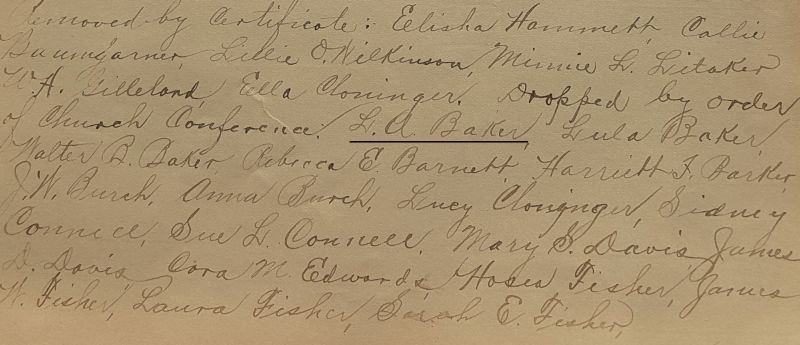 Removed by Certificate: Eelisha Hammett, Callie
Baumgarner, Lillie O. Wilkinson, Minnie L. Litaker
W.A. Gilleland, Ella Cloninger. Dropped by order
of Church Conference. L. A. Baker, Lula Baker,
Walter B. Baker, Rebecca E. Barnett, Harriett F. Barker,
J.W. Burch, Anna Burch, Lucy Cloninger, Sidney
Connell, Sue L. Connell, Mary S. Davis, James
D. Davis, Cora M. Edwards, Hosea Fisher, James
W. Fisher, Laura Fisher, Sarah E. Fisher,